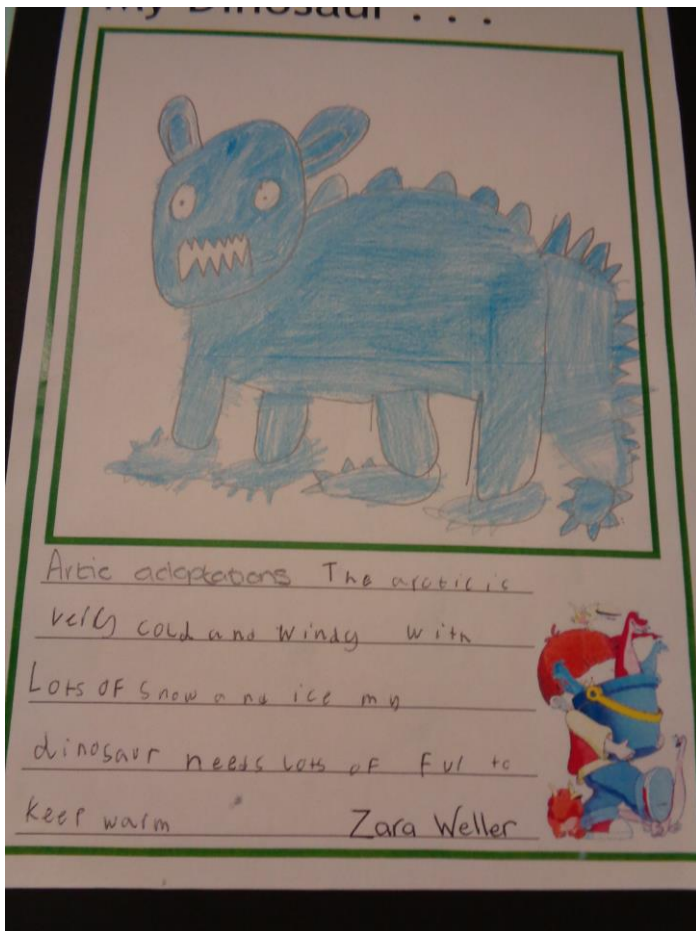 My Dinosaur . . .
Artic adaptations The arctic is
very cold and windy with
Lots OF snow and ice my
dinosaur needs lots of fur to
keep warm Zara Weller